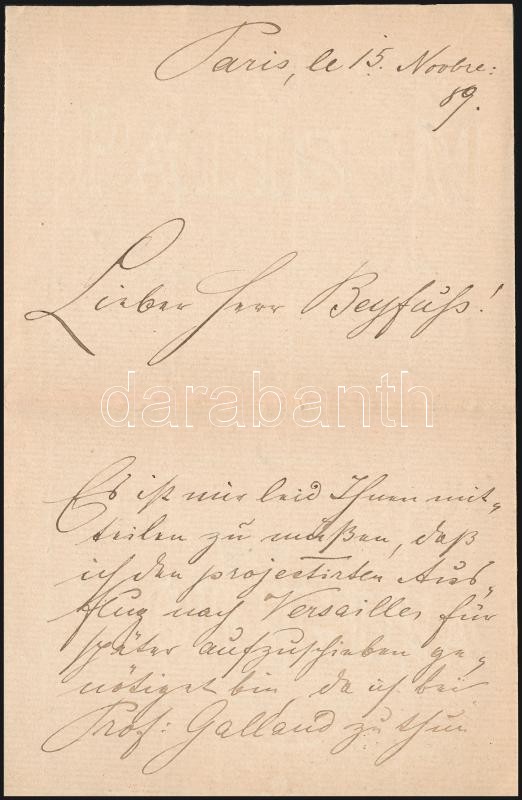 Paris, le 15. Novbre:
89.
Lieber Herr Beyfuß!
darabanth
Es ist mir leid Ihnen mit„
teilen zu müßen, daß
ich den projectirten Aus„
flug nach Versailles für
später aufzuschieben ge„
nötiget bin, da ich bei
Prof: Galland zu thun